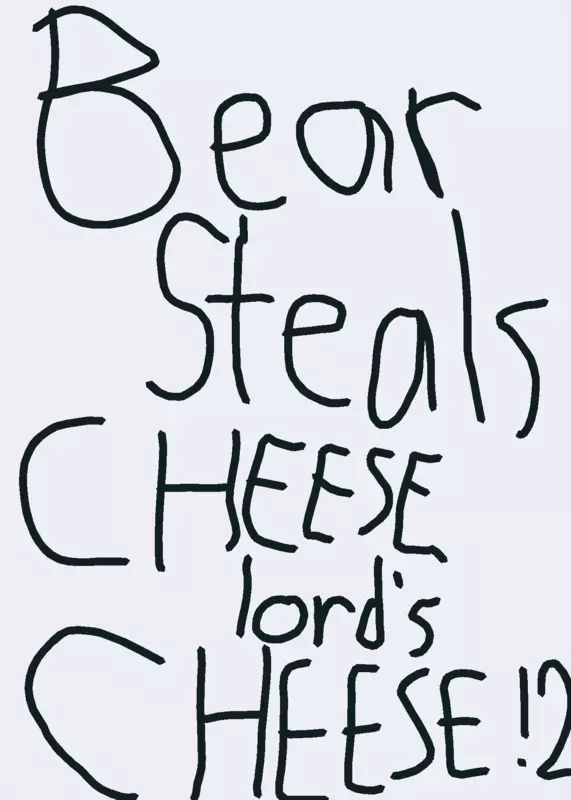 Bear
Steals
CHEESE
lord's
CHEESE!2